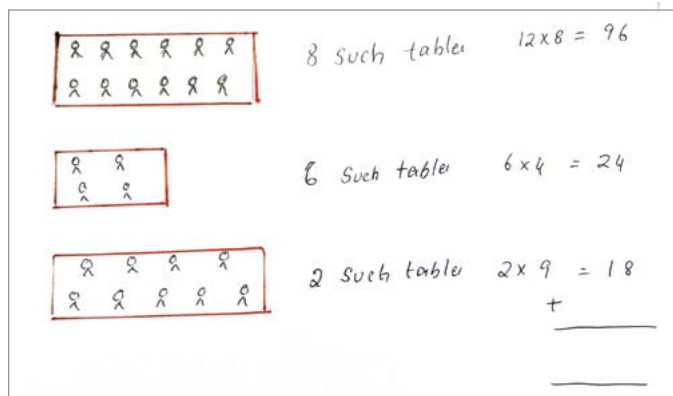 8 Such tables 12 x 8 = 96
6 Such tables 6 x 4 = 24
2 Such tables 2 x 9 = 18
+